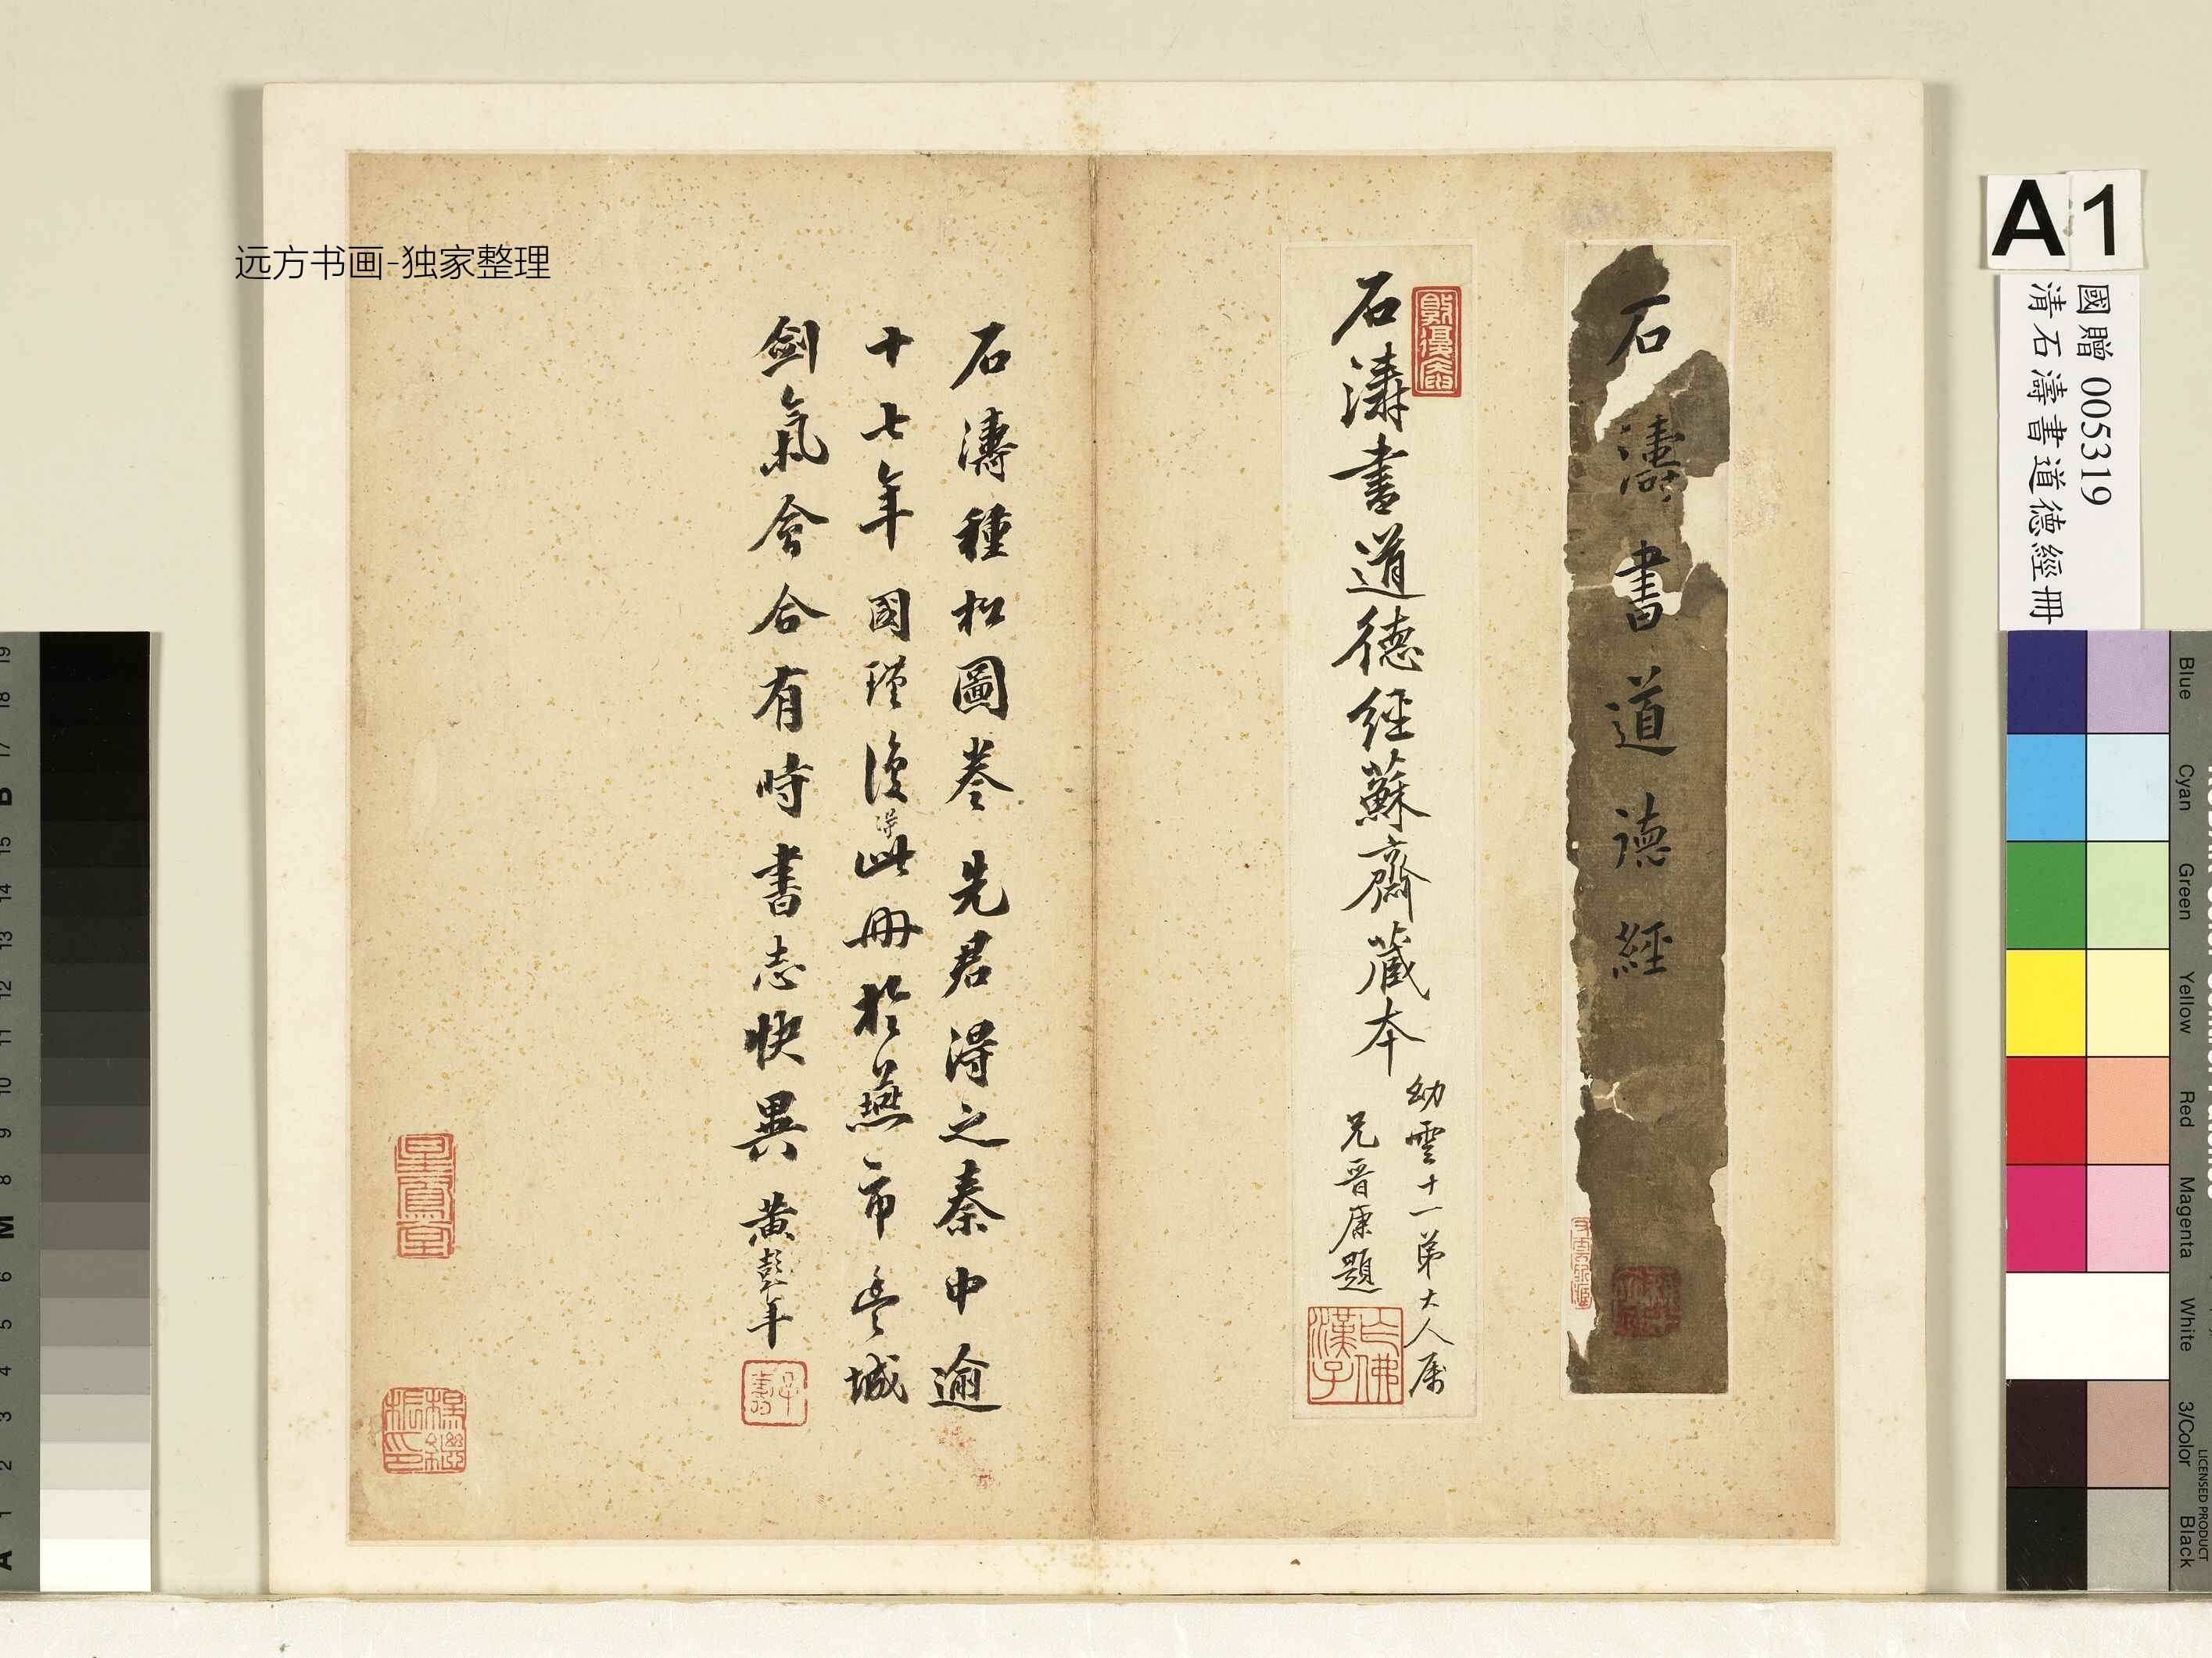 石濤書道德經
石濤書道德經蘇齋藏本
幼雲十一弟大人屬
兄晉康題
石濤種松圖卷先君得之秦中逾
十七年國瑾復得此冊於燕市豐城
劍氣會合有時書志快異黃彭年
远方书画-独家整理
A1
國贈 005319
清石濤書道德經冊
Blue
Cyan
Green
Yellow
Red
Magenta
White
3/Color
Black
LICENSED PRODUCT
19
18
17
B
15
14
13
12
11
10
9
8
M
6
5
4
3
2
1
A